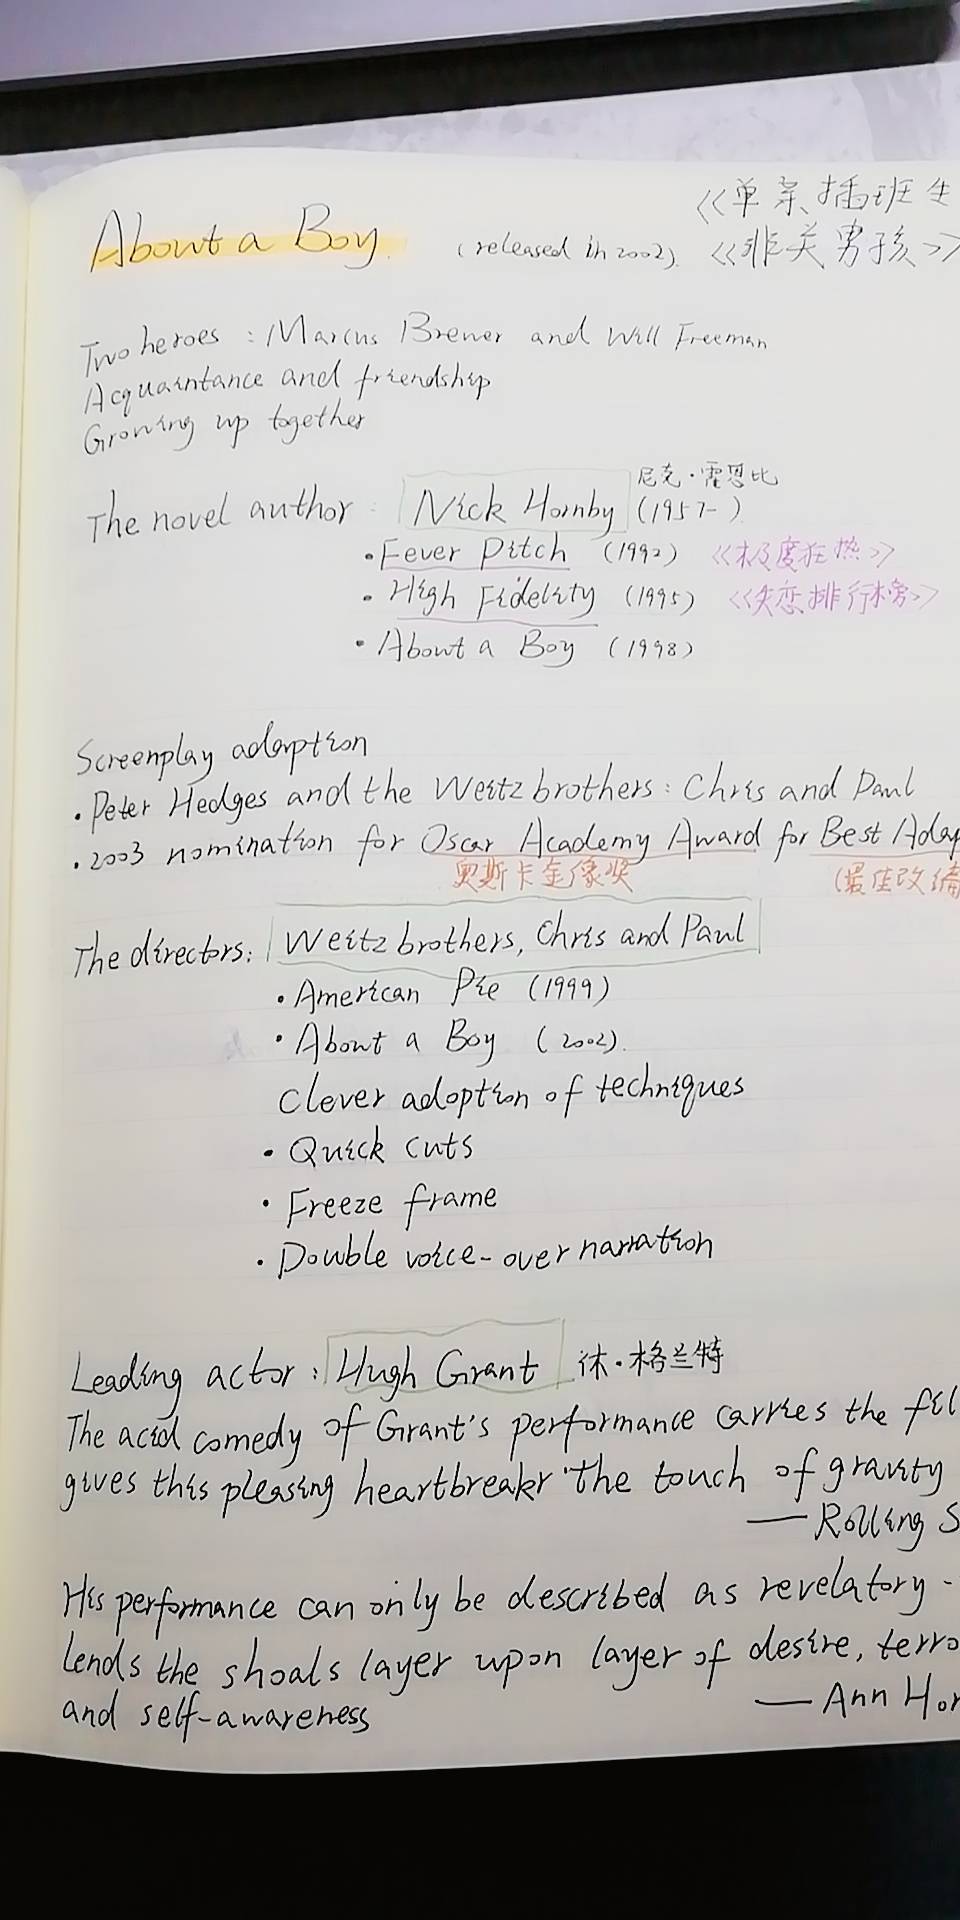 About a Boy. (released in 2002). 《单亲插班生
《非关男孩》
Two heroes : Marcus Brewer and Will Freeman
Acquaintance and friendship
Growing up together
尼克·霍恩比
The novel author : Nick Hornby (1957- )
• Fever Pitch (1992) 《极度狂热》
• High Fidelity (1995) 《失恋排行榜》
• About a Boy (1998)
Screenplay adaption
• Peter Hedges and the Weitz brothers : Chris and Paul
• 2003 nomination for Oscar Academy Award for Best Adap
奥斯卡金像奖 (最佳改编
The directors: Weitz brothers, Chris and Paul
• American Pie (1999)
• About a Boy (2002).
Clever adoption of techniques
• Quick cuts
• Freeze frame
• Double voice-over narration
Leading actor : Hugh Grant 休·格兰特
The acid comedy of Grant's performance carries the fil
gives this pleasing heartbreakr the touch of gravity
— Rolling S
His performance can only be described as revelatory -
lends the shoals layer upon layer of desire, terro
and self-awareness — Ann Hor